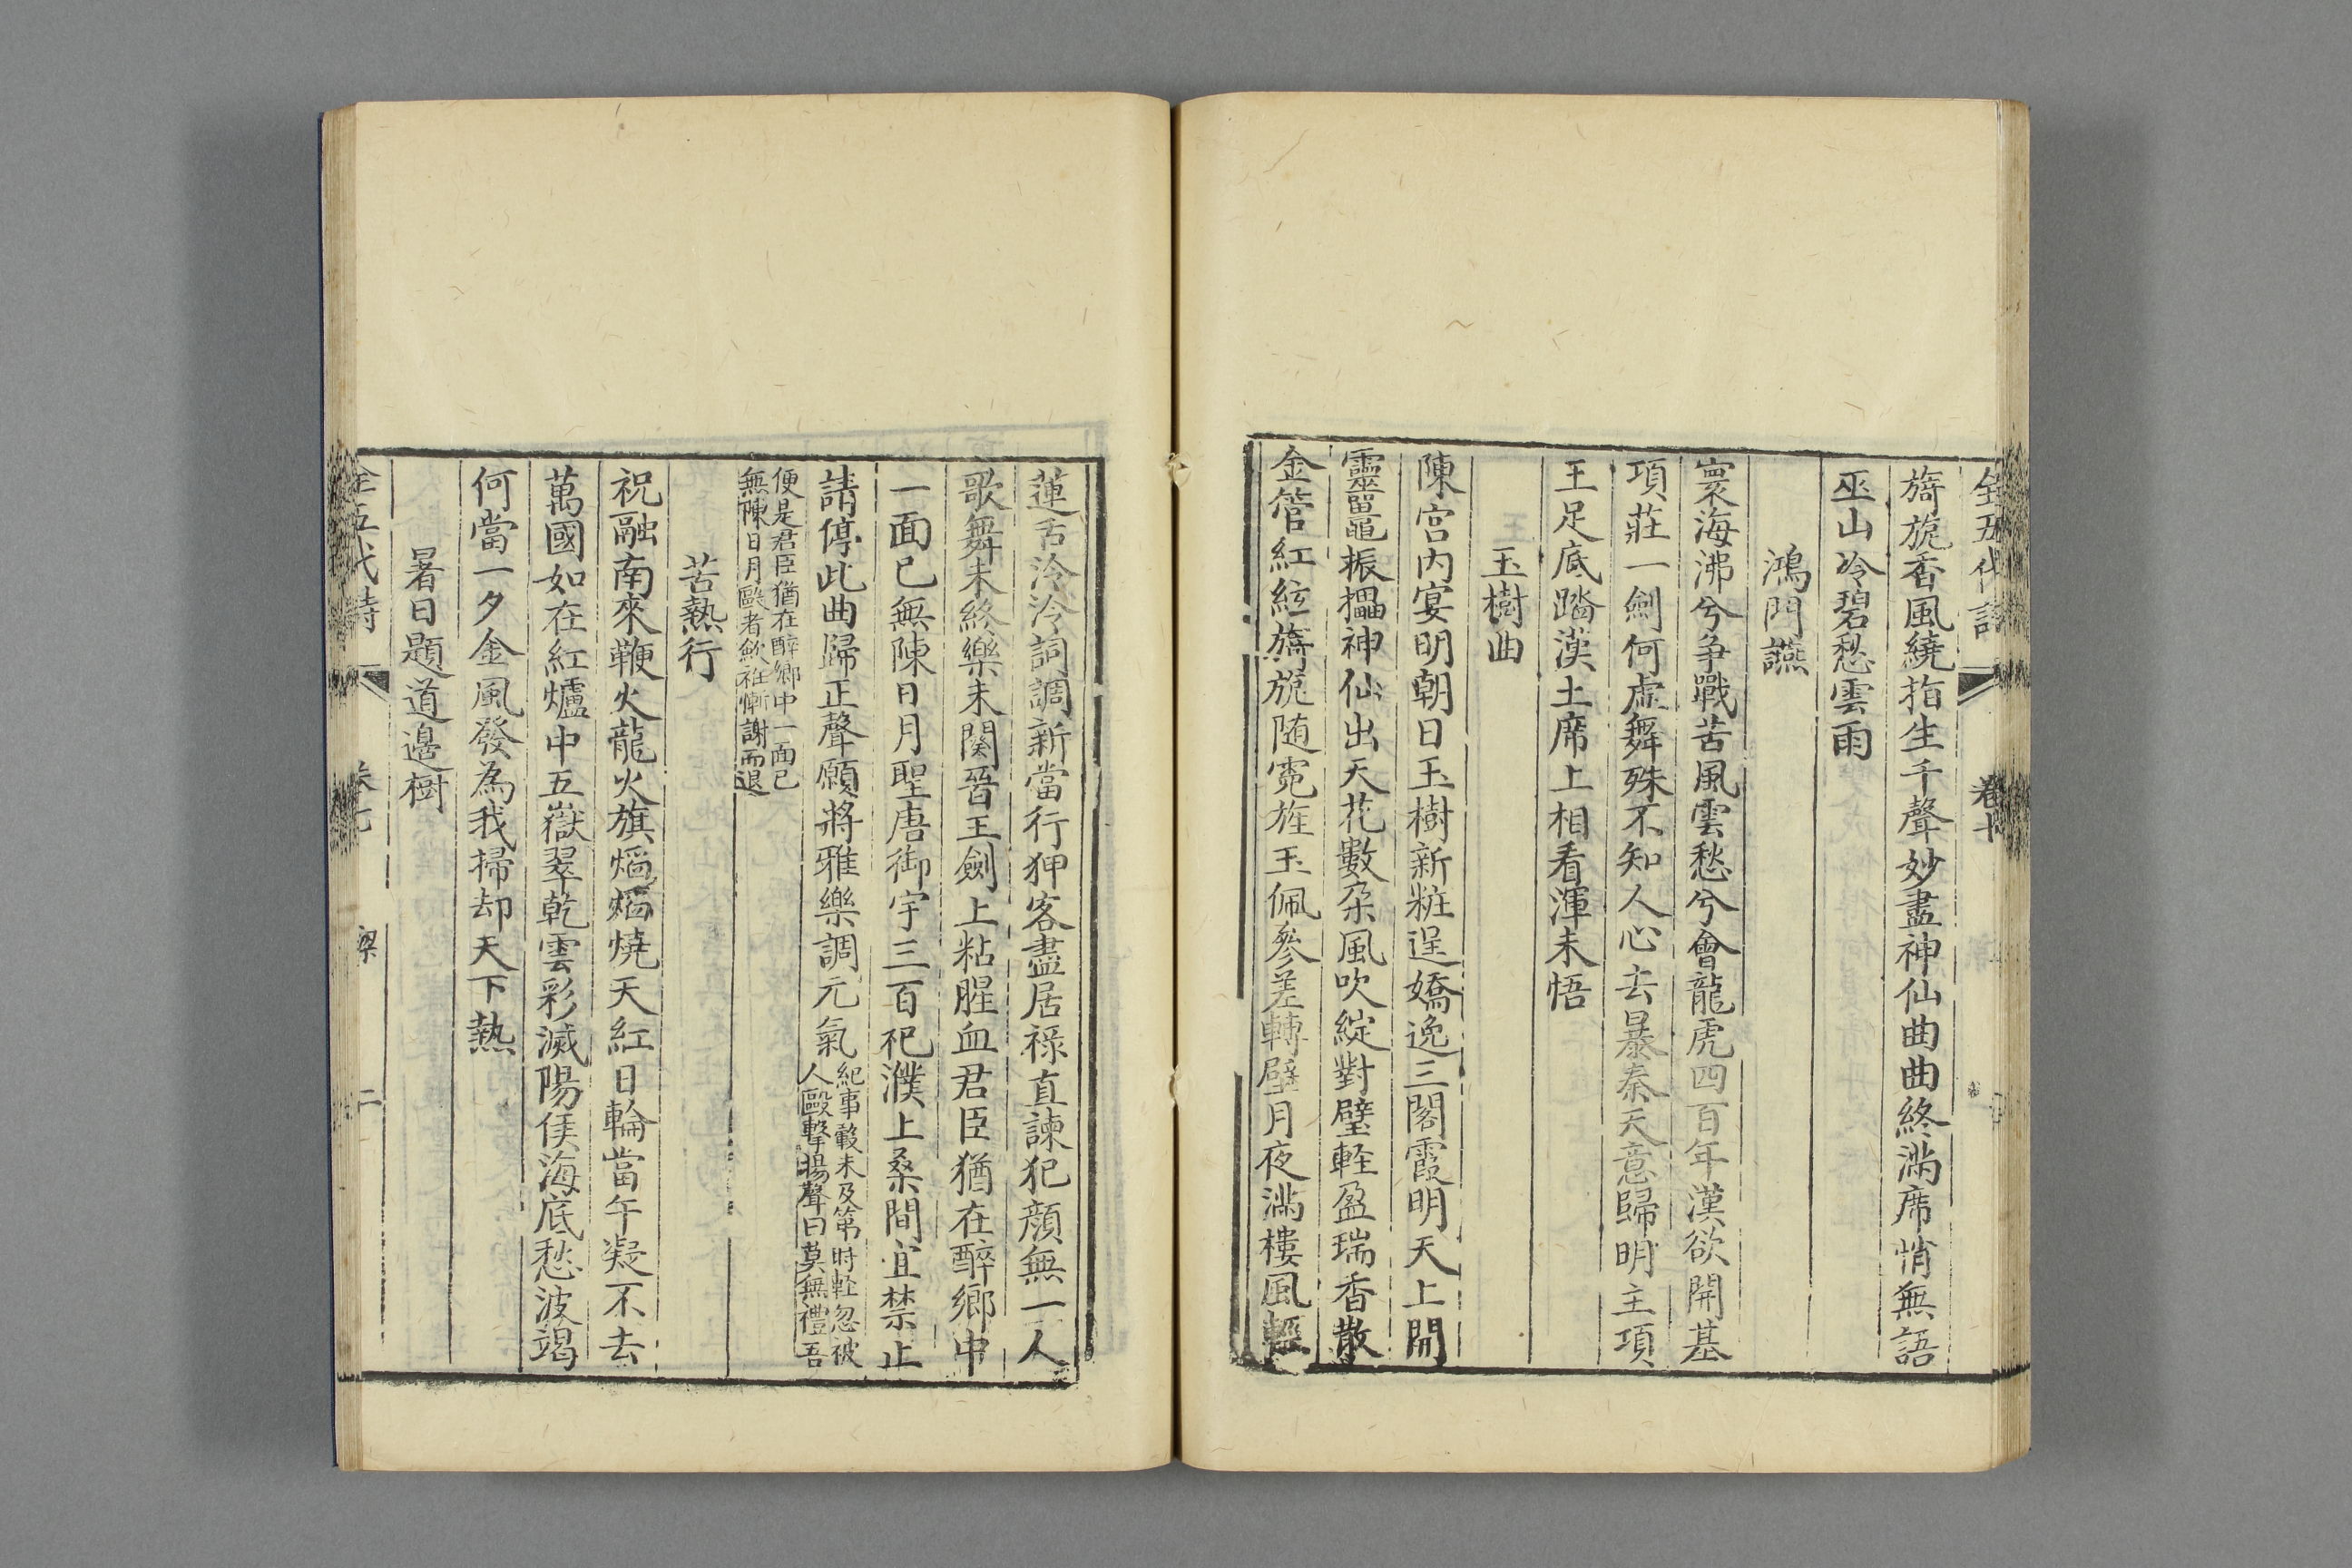 全五代詩 卷十
旖旎香風繞指生千聲妙盡神仙曲曲終滿席悄無語
巫山冷碧愁雲雨
鴻門讌
寰海沸兮争戰苦風雲愁兮會龍虎四百年漢欲開基
項莊一劍何虛舞殊不知人心去暴秦天意歸明主項
王足底踏漢土席上相看渾未悟
玉樹曲
陳宫内宴明朝日玉樹新粧逞嬌逸三閣霞明天上開
靈鼉振攂神仙出天花數朶風吹綻對璧輕盈瑞香散
金管紅絃旖旎随霓旌玉佩參差轉壁月夜滿樓風輕
蓮舌泠泠詞調新當行狎客盡居祿直諫犯顔無一人
歌舞未終樂未闋晉王劍上粘腥血君臣猶在醉鄉中
一面已無陳日月聖唐御宇三百祀濮上桑間宜禁止
請停此曲歸正聲願將雅樂調元氣
紀事轂未及第時輕忽被
人毆擊揚聲曰莫無禮吾
便是君臣猶在醉鄉中一面已
無陳日月毆者歛袵慚謝而退
苦熱行
祝融南來鞭火龍火旗熖熖燒天紅日輪當午凝不去
萬國如在紅爐中五嶽翠乾雲彩滅陽侯海底愁波竭
何當一夕金風發為我掃却天下熱
暑日題道邊樹
全五代詩 梁 二